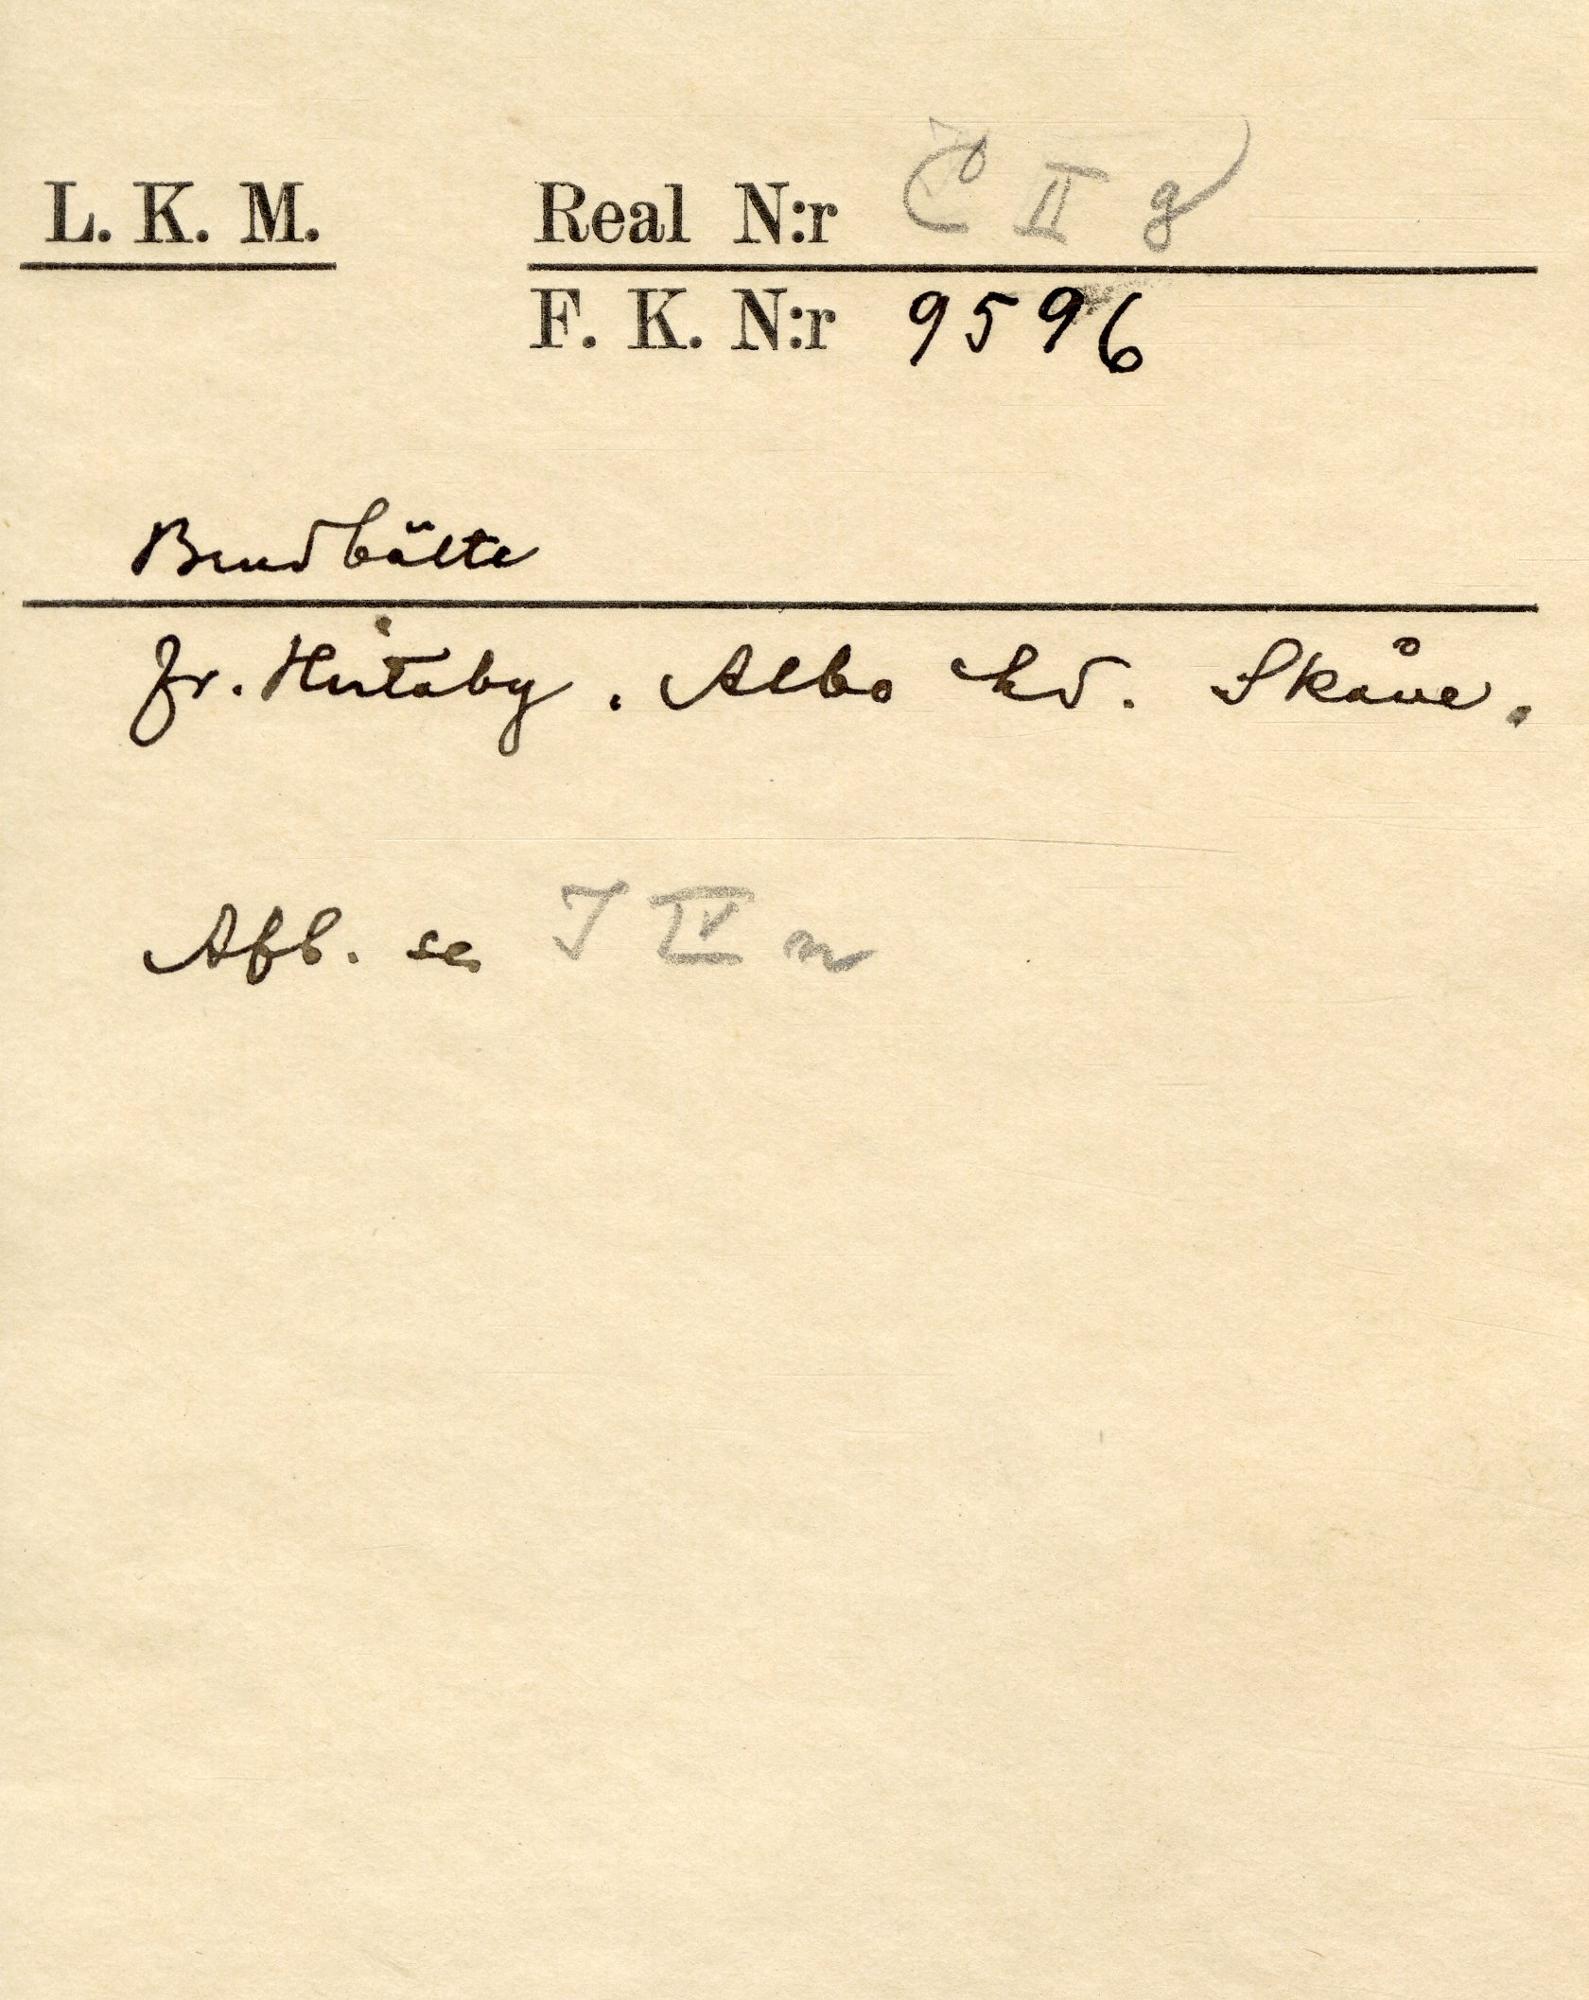 L. K. M. Real N:r C II g
F. K. N:r 9596
Brudbälte
fr. Albo hd. Skåne.
Afb. se J IV m